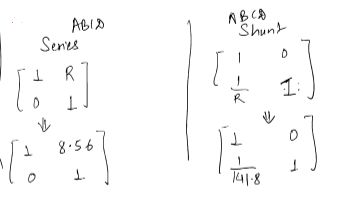 ABCD
Series
[ 1 R ]
[ 0 1 ]
⇓
[ 1 8.56 ]
[ 0 1 ]
ABCD
Shunt
[ 1 0 ]
[ 1/R 1 ]
⇓
[ 1 0 ]
[ 1/141.8 1 ]